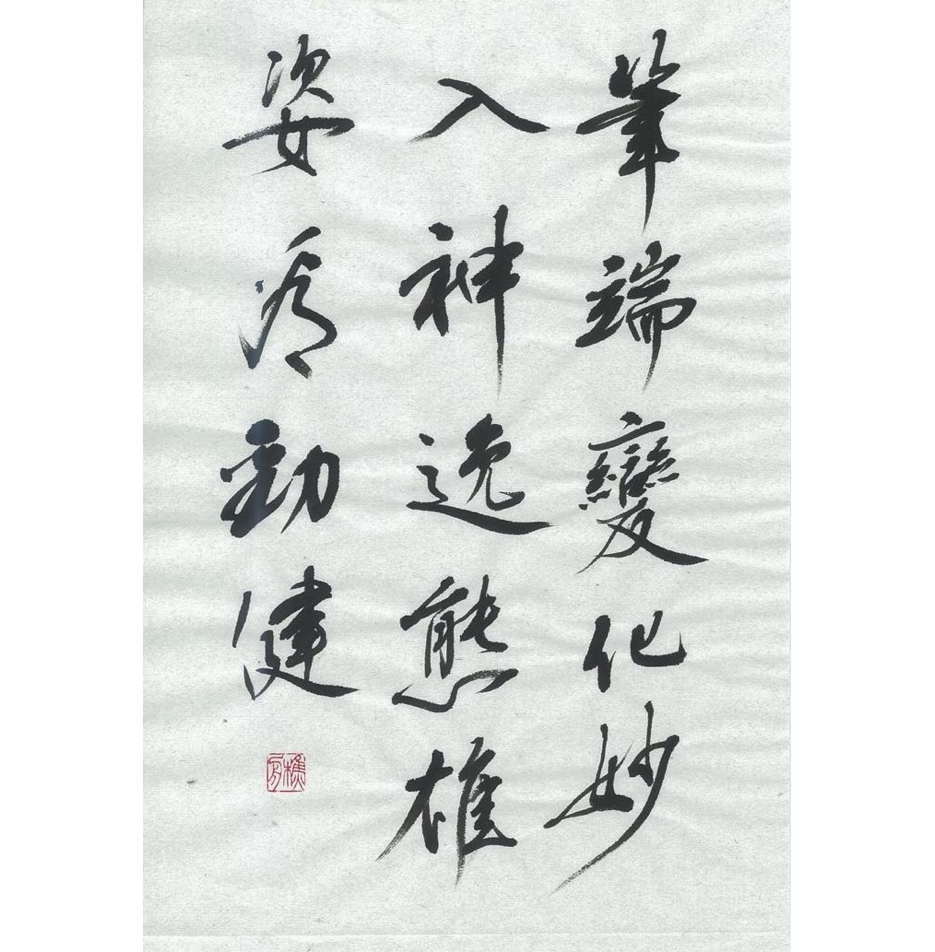 筆端變化妙
入神逸態雄
姿勁健